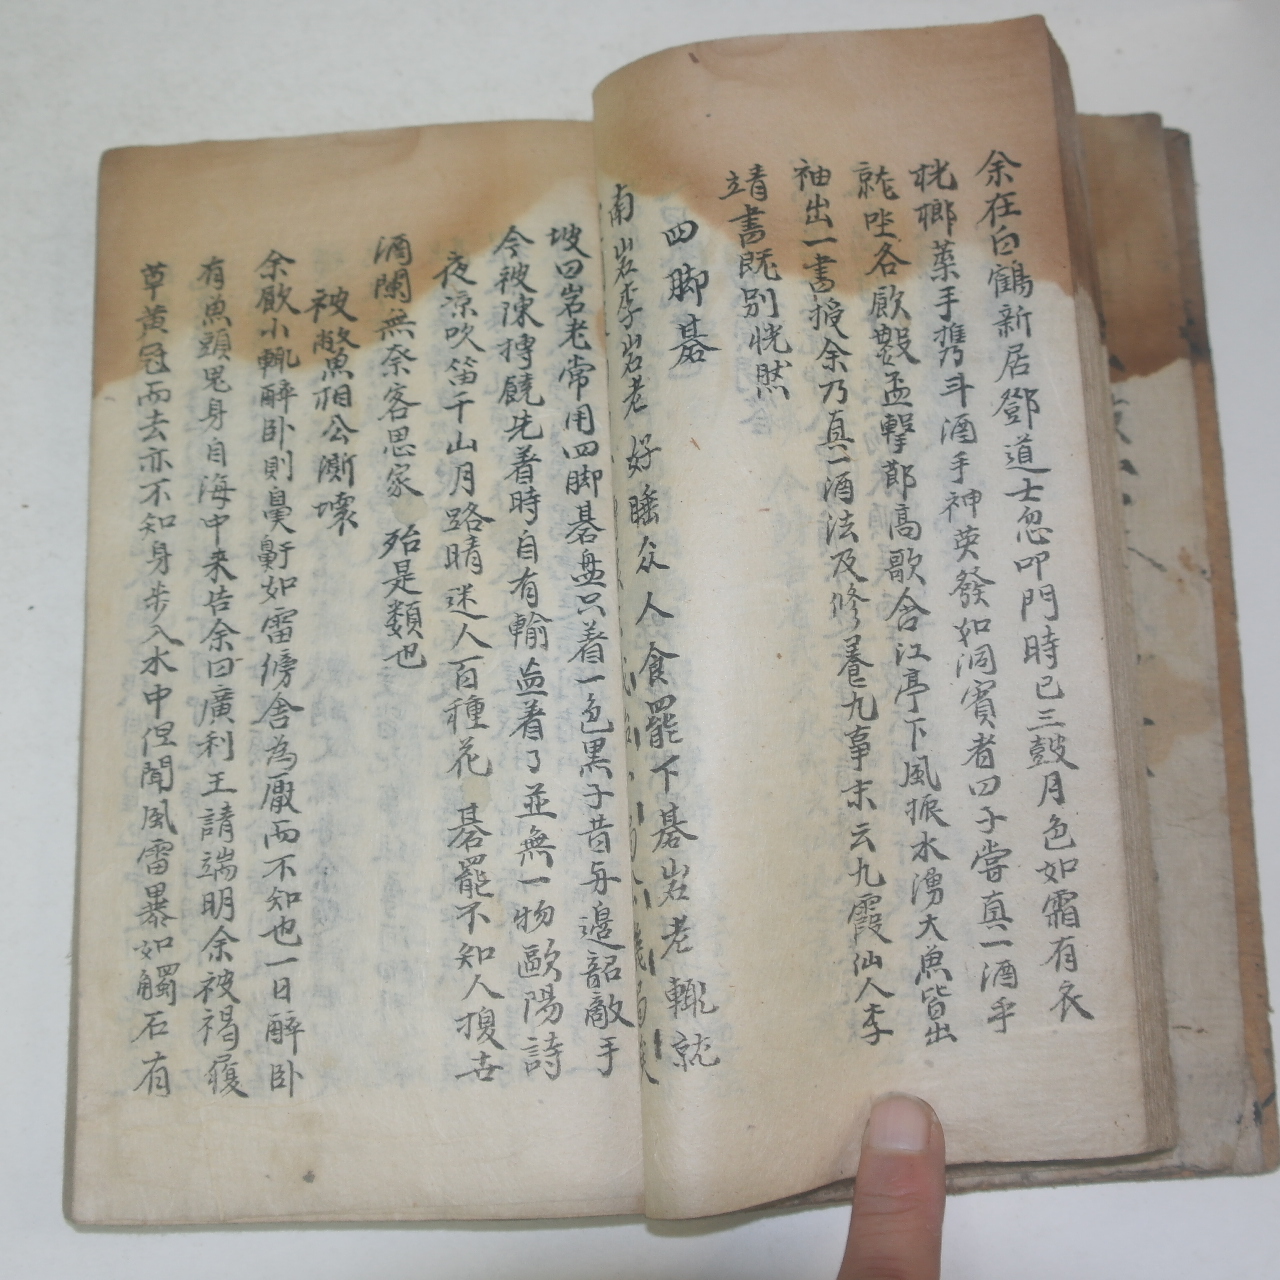 余在白鶴新居鄧道士忽叩門時已三鼓月色如霜有衣
桄榔葉手携斗酒手神英發如洞賓者曰子嘗真一酒乎
就坐各飮數盃擊節高歌合江亭下風振水湧大魚皆出
袖出一書授余乃真一酒法及修養九事末云九霞仙人李
靖書既別恍然
四脚碁
南岩李岩老好睡众人食罷下碁岩老輒就
坡曰岩老常用四脚碁盘只着一色黒子昔与邉韶敵手
今被陳摶饒先着時自有輸
着了並無一物歐陽詩
夜凉吹笛千山月路晴迷人百種花碁罷不知人換世
酒闌無奈客思家殆是類也
被鱉相公澌壞
余飮小輒醉卧則鼻鼾如雷傍舍為厭而不知也一日醉卧
有魚頭鬼身自海中来告余曰廣利王請端明余被褐履
草黄冠而去亦不知身步入水中但聞風雷暴如觸石有